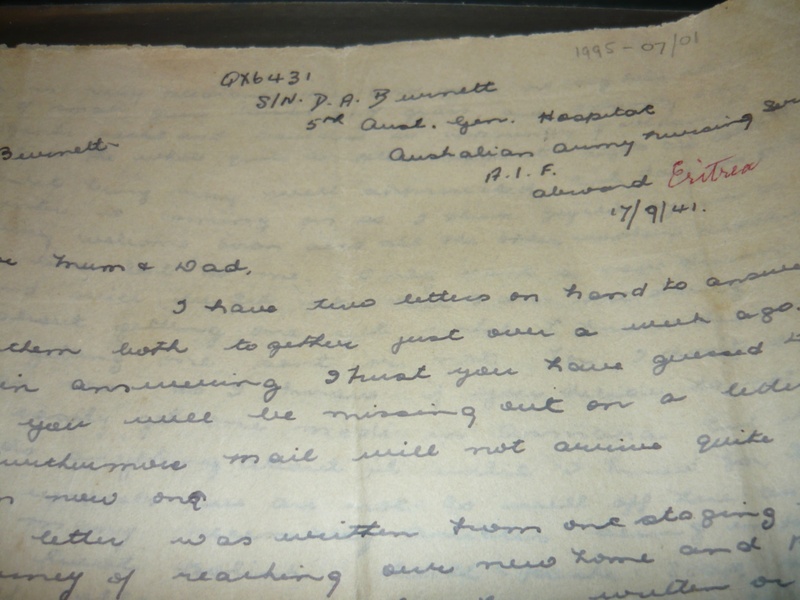 1995-07/01
QX6431
S/N. D. A. Burnett
5th Aust. Gen. Hospital
Burnett
Australian Army Nursing Ser
A.I.F.
abroad Eritrea
17/9/41.
Mum & Dad,
I have two letters on hand to answe
them both together just over a week ago.
in answering I trust you have guessed
you will be missing out on a lette
urthermore mail will not arrive quite
now on
letter was written from one staging
rney of reaching our new home and
written or